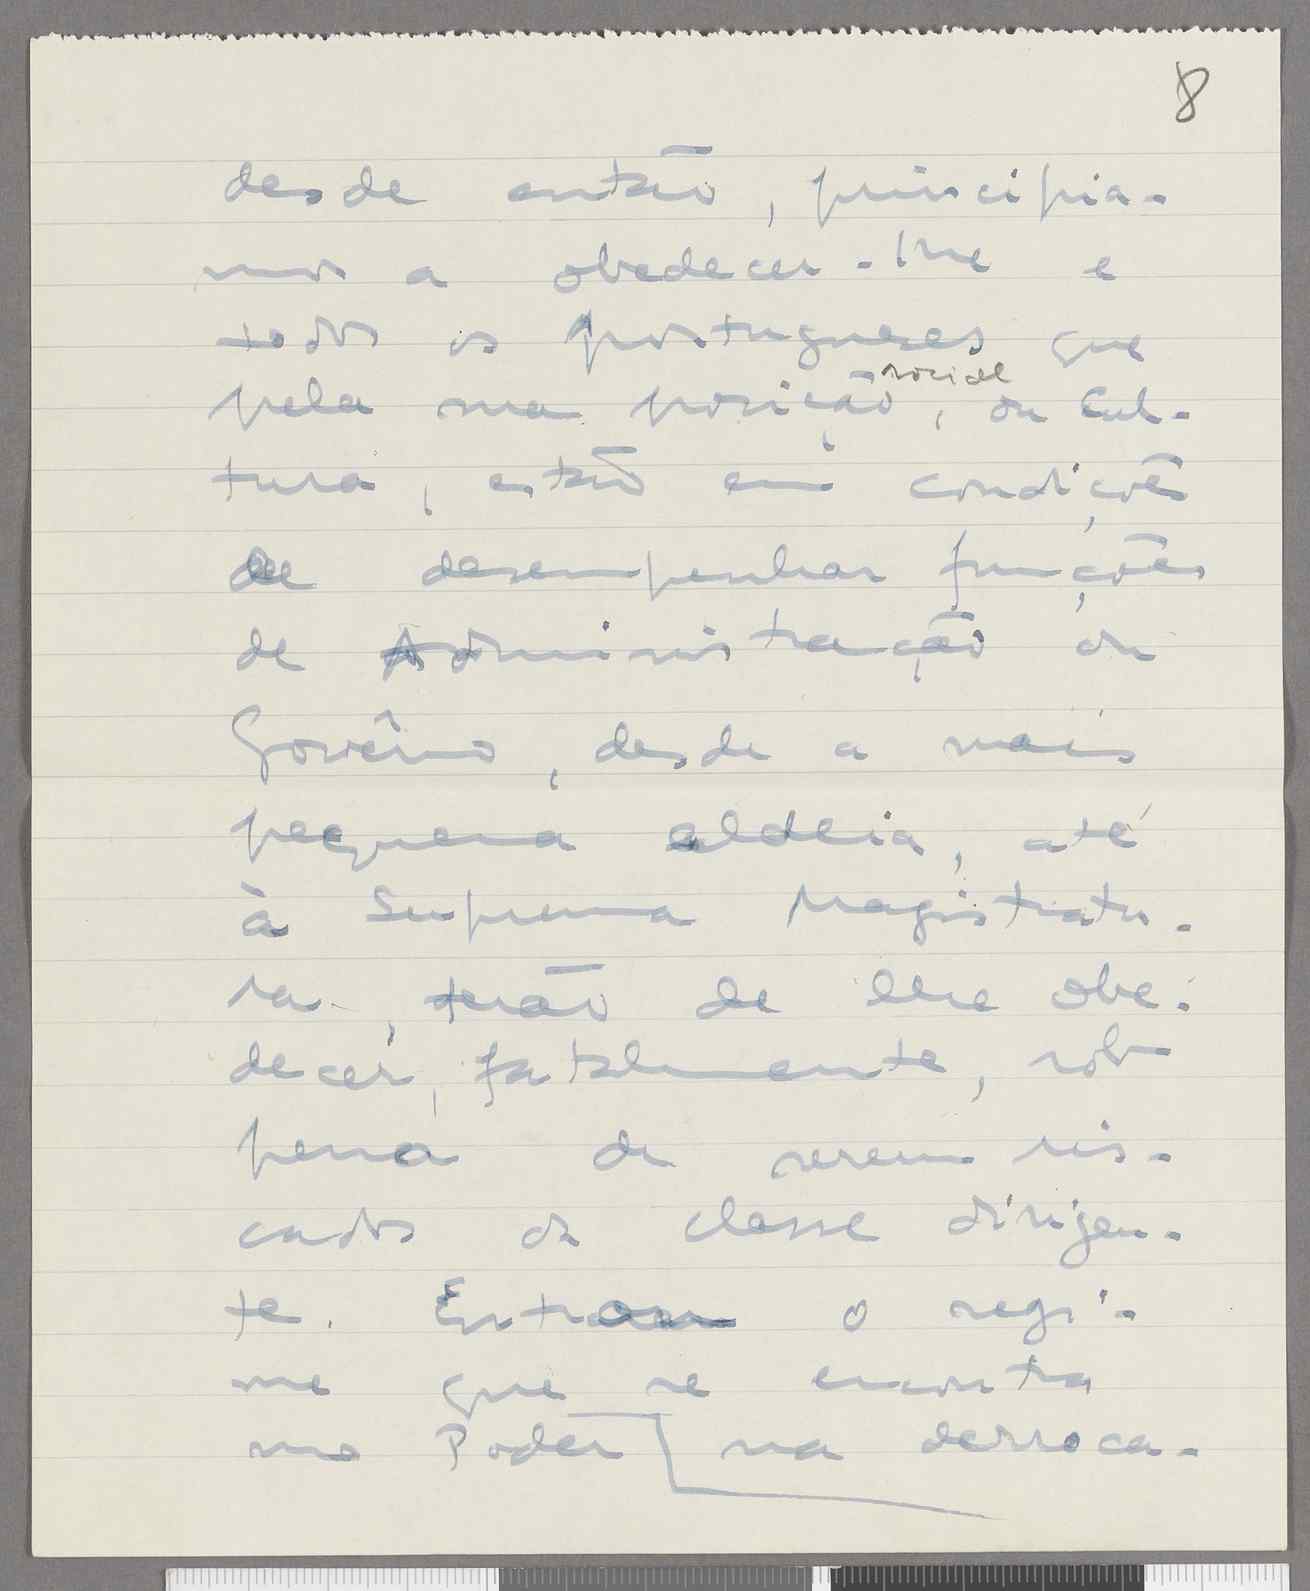 8
desde então, principia-
mos a obedecer-lhe e
todos os portugueses que
pela sua posição social, ou cul-
tura, estão em condições
de desempenhar funções
de Administração ou
Govêrno, desde a mais
pequena aldeia, até
à Suprema Magistratu-
ra, terão de lhe obe-
decer, fatalmente, sob
pena de serem ris-
cados da classe dirigen-
te. Entrou o regi-
me que se encontra
no Poder na derroca-